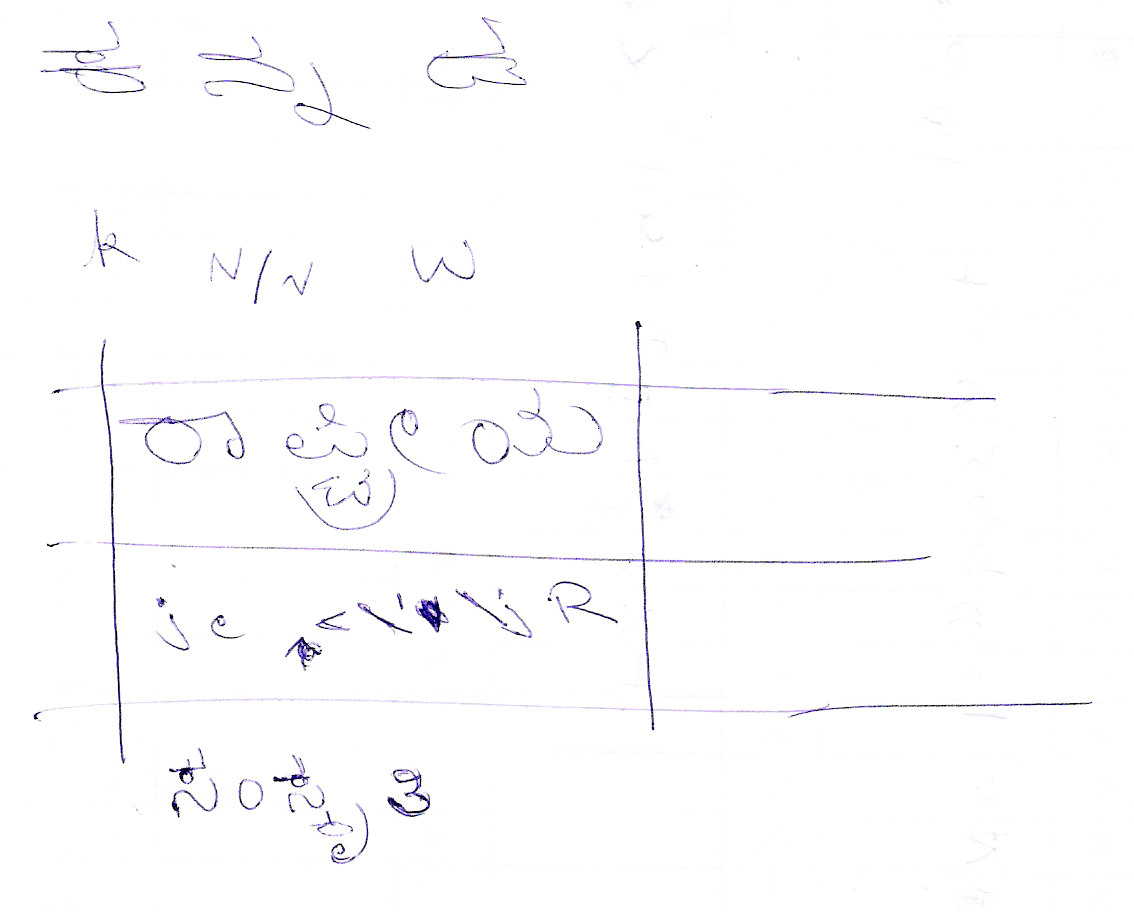 ಕ ನ್ನ ಡ
k N/N W
ರಾ ಷ್ಟ್ರೀ ಯ
je
R
ಸಂಸ್ಕೃತಿ